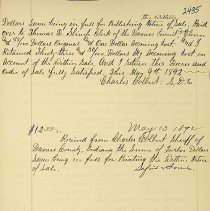 the Within
2485
Dollars Same being in full for Publishing Notice of Sale. Paid
over to Thomas D. Slimp Clerk of the Daviess Circuit
and Dollars Original and One Dollar Docketing Cost and I
Retained Thirty three and Dollars My Docketing Cost on
account of the Within Sale. And I return this Decree and
Order of Sale fully Satisfied. This May 9th 1892
Charles Colbert S.D.Co
$12.00 May 13 1892
Received from Charles Colbert Sheriff of
Daviess County, Indiana the Sum of Twelve Dollars
Same being in full for Printing the Within Notice
of Sale.